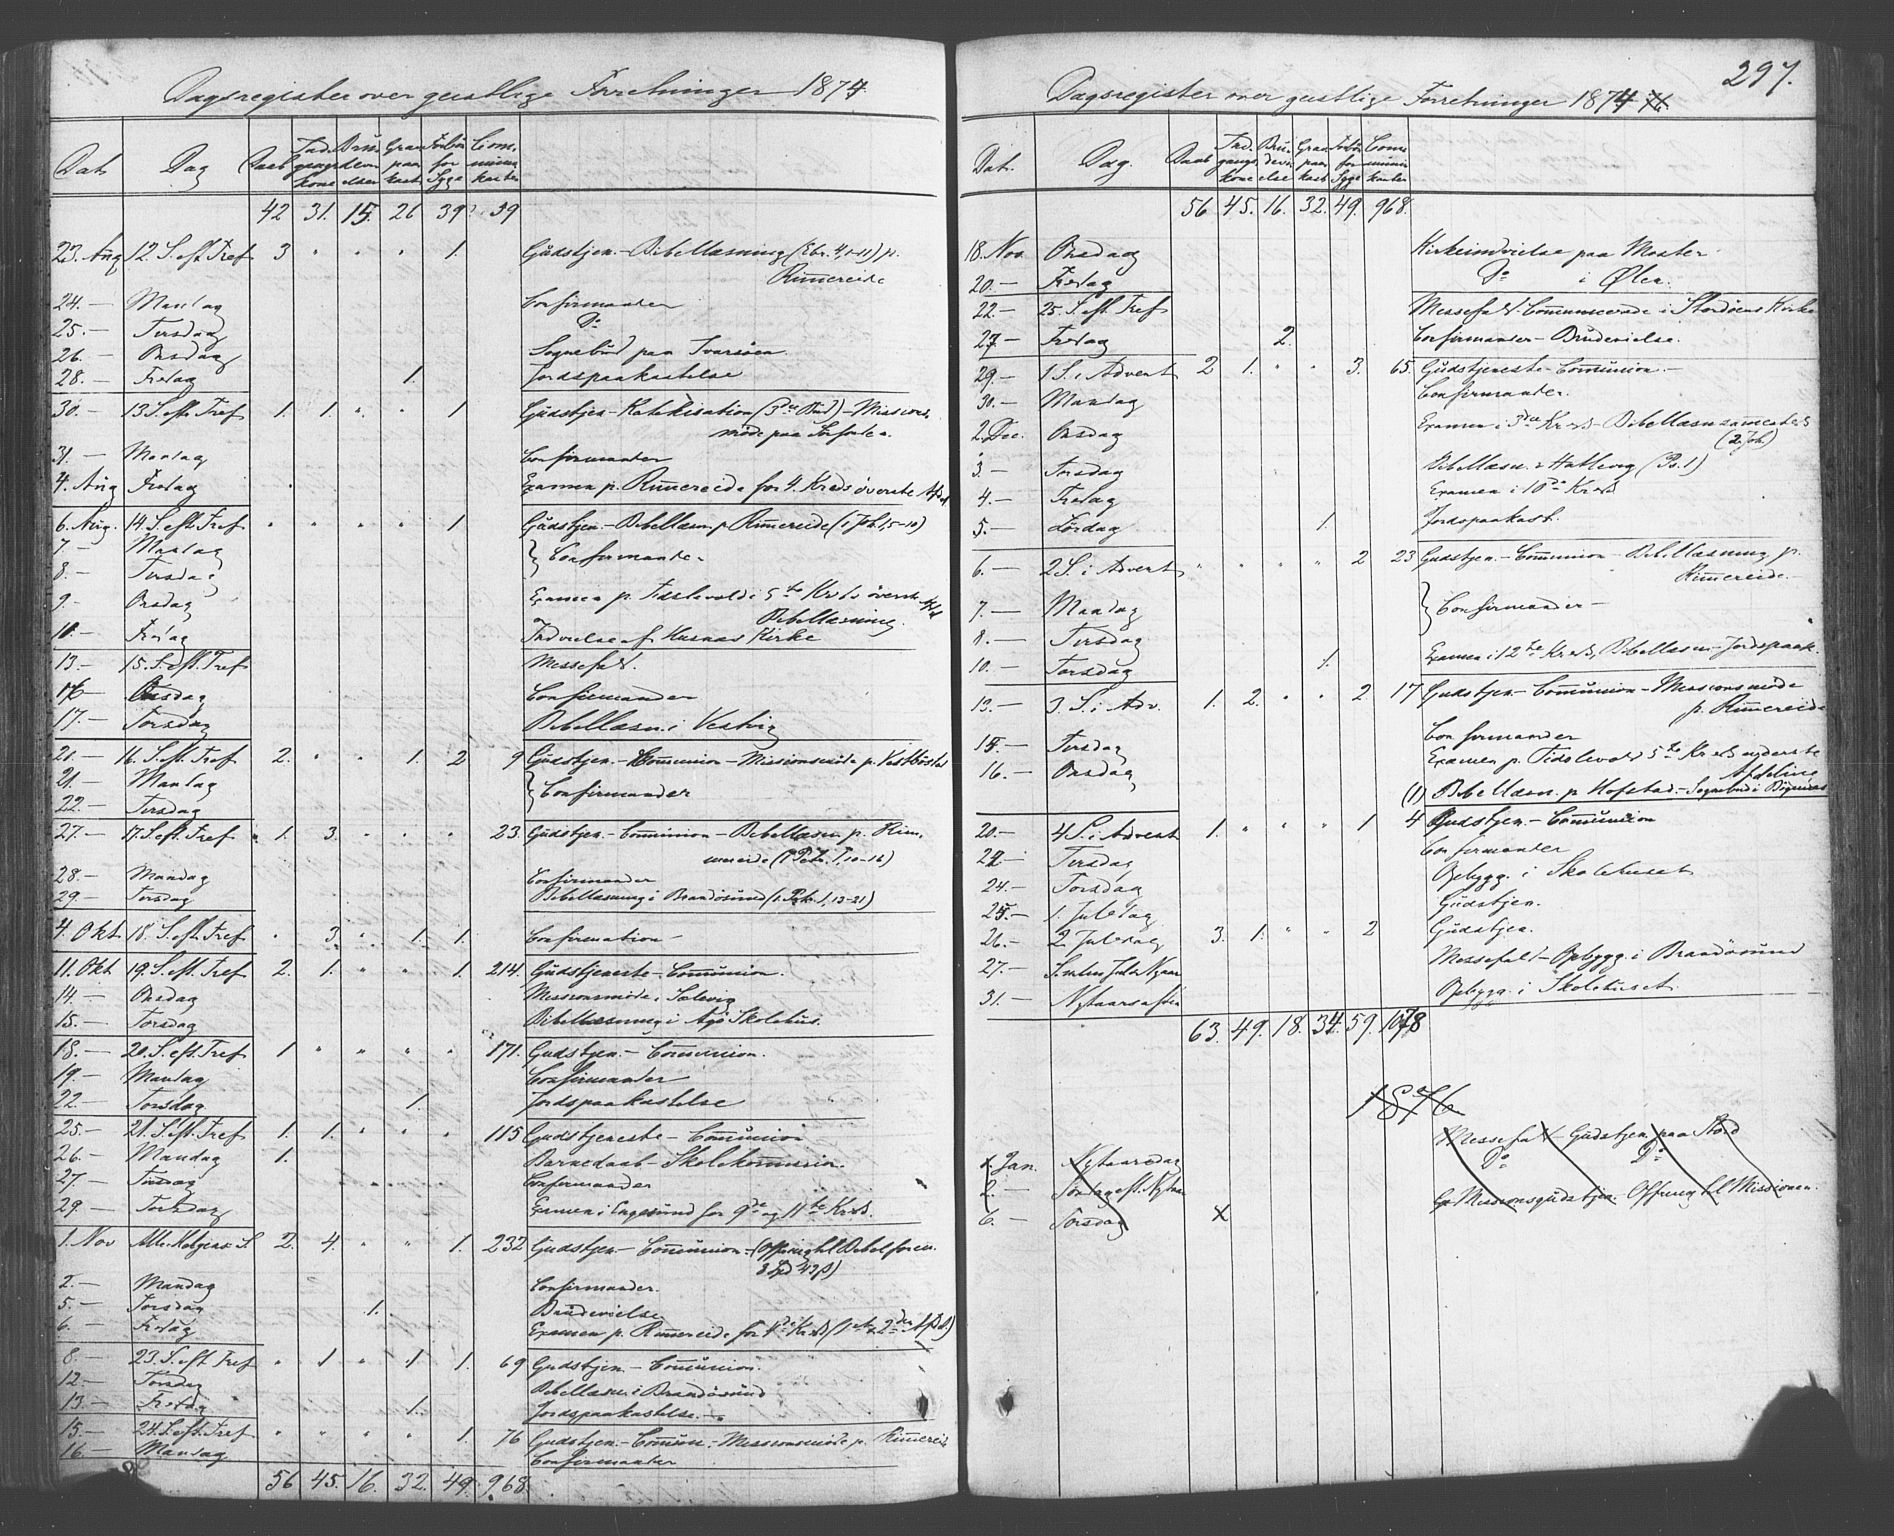 Dagsregister over geistlige Forretninger 1874
Dat. Dag Daab Ind-gangskone Bru-devielser Graapaakast Forbön for Syge Commu-nikanter
42 31. 15. 26 39 39
23. Aug 12. S. eft. Tref 3 " " " 1. Gudstjen. - Bibellæsning (Ebr. 4,1-11) p.
Rimereide
24. — Mandag Confirmander
25. — Tirsdag Do
26. — Onsdag Sognebud paa
28. — Fredag 1. Jordspaakastelse
30. — 13. S. eft. Tref 1. 1 " " 1 Gudstjen. - Katekisation (3die Bud) - Missions-
møde paa
31. — Mandag Confirmander
4. Aug Fredag Examen p. Rimereide for 4. Kreds överste Afd
6. Aug. 14. S. eft. Tref " " " " 1 Gudstjen. - Bibellæsn. p. Rimereide (1 Joh. 1,5-10)
7 — Mandag } Confirmander
8. — Tirsdag
9. — Onsdag Examen p. Tislevold i 5te Kreds överste Afd
Bibellæsning.
10. — Fredag Indvielse af Husnæs Kirke
13. — 15. S. eft. Tref Messefald.
16 — Onsdag Confirmander
17. — Torsdag Bibellæsn. i Vestvig
20. — 16. S. eft. Tref 2. " " 1. 2 9 Gudstjen. - Communion - Missionsmöde p. Vestböstad
21. — Mandag } Confirmander
22. — Tirsdag
27. — 17. S. eft. Tref 1. 3. " " " 23. Gudstjen. - Communion - Bibellæsn. p. Rim-
mereide (1 Pet. 1,10-16)
28. — Mandag Confirmander
29. — Tirsdag Bibellæsning i Brandösund (1. Petr. 1,13-21)
4. Okt 18. S. eft. Tref " 3. " 1. 1. Confirmation
11. Okt 19. S. eft. Tref 2. 1. " " 1. 214. Gudstjeneste - Communion.
14. — Onsdag Missionsmöde i Selevig
15. — Torsdag Bibellæsning i Agö Skolehus.
18. — 20. S. eft. Tref 1 " " " " 171. Gudstjen. - Communion.
19. — Mandag Confirmander
22. — Torsdag 1. Jordspaakastelse
25. — 21. S. eft. Tref 1. 1. " " " 115 Gudstjeneste - Communion
26. — Mandag 1. Barnedaab - Skolekommission.
27. — Tirsdag Confirmander
29. — Torsdag Examen i Engesund for 9de og 11te Kreds.
1. Nov Alle Helgens S. 2. 4. " " 1. 232 Gudstjen. - Communion - (Offring til Bibelforen.
8 Spd 42 β)
2. — Mandag Confirmander.
5. — Torsdag 1. Brudevielse
6. — Fredag Examen p. Rimereide for 4de Kreds (1ste & 2den Afd.)
8. — 23. S. eft. Tref " 1 " 1 1. 69 Gudstjen. - Communion.
12. — Torsdag Bibellæsn. i Brandösund
13. — Fredag 1. Jordspaakastelse. —
15. — 24. S. eft. Tref " " " " 1. 76 Gudstjen. - Commun. - Missionsmöde p. Rimereide
16. — Mandag Confirmander
56 45. 16. 32. 49. 968.
297.
Dagsregister over geistlige Forretninger 1874
Dat. Dag. Daab Ind-gangs-kone Bru-deviel-else Graapaakast Forbön for Syge Commu-nikanter
56 45. 16. 32. 49. 968.
18. Nov Onsdag Kirkeindvielse paa Moster.
20. — Fredag Do i Ølen.
22. — 25. S. eft. Tref Messefald. Communicerede i Stordöens Kirke
27 — Fredag 2. Confirmander - Brudevielse.
29. — 1 S. i Advent 2 1. " " 3. 65. Gudstjeneste - Communion. —
30. — Mandag Confirmander.
2. Dec. Onsdag Examen i 3die Kreds - Bibellæsn sammesteds
(2. Joh)
3 — Torsdag Bibellæsn. i Hatlevig (Ps. 1)
4. — Fredag Examen i 10de Kreds
5. — Lördag 1. Jordspaakast.
6. — 2 S. i Advent " " " " 2 23 Gudstjen. - Communion - Bibellæsning p.
Rimereide. —
7. — Mandag } Confirmander —
8. — Tirsdag
10. — Torsdag 1. Examen i 12te Kreds, Bibellæsn. - Jordspaak.
13. — 3. S. i Adv. 1. 2. " " 2 17 Gudstjen. - Communion - Missionsmöde
p. Rimereide
15. — Tirsdag Confirmander
16. — Onsdag Examen p. Tislevold 5te Kreds nederste
Afdeling
(1) Bibellæsn. p. Hofstad. - Sognebud i
20. — 4 S. i Advent 1. " " " 1 4 Gudstjen. - Communion
22. — Tirsdag Confirmander
24. — Torsdag Opbygg. i Skolehuset
25. — 1. Juledag Gudstjen.
26. — 2. Juledag 3. 1. " " 2 Gudstjen.
27. — S. mlm Jul & Nyaar Messefald - Opbygg. i Brandösund
31. — Nytaarsaften Opbygg. i Skolehuset.
63. 49. 18. 34. 59. 1078
1876
Messefald - Gudstjen. paa Stord
1. Jan. Nytaarsdag Do Do
2. — Söndag eft. Nytaar
6. — Torsdag X Missionsgudstjen. Offring til Missionen.